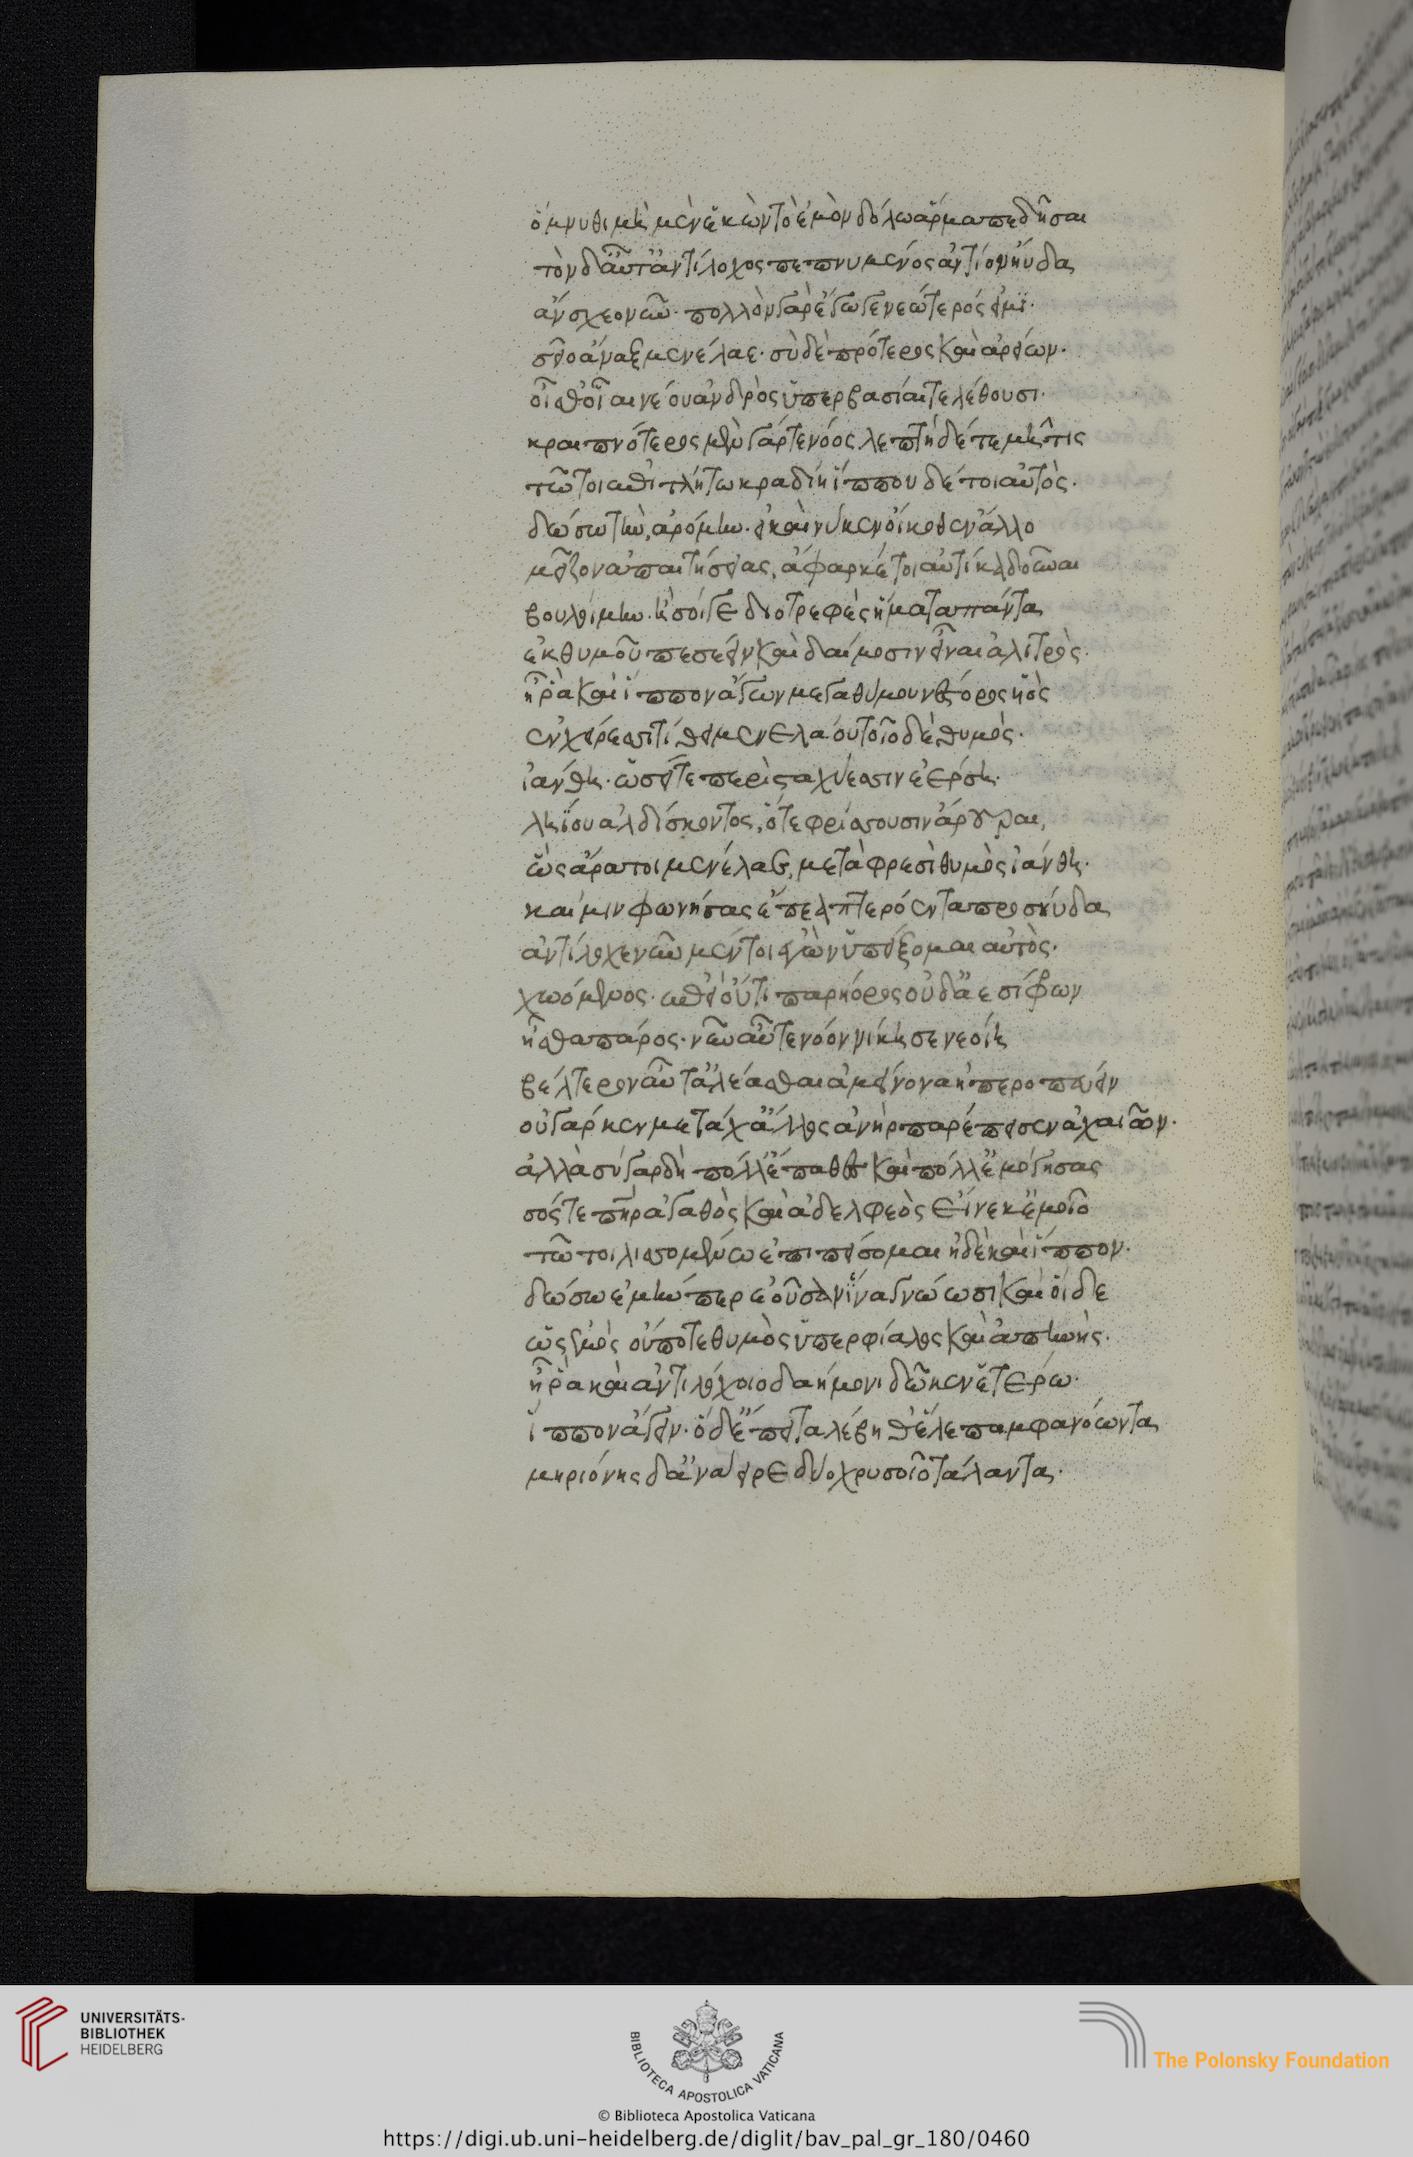 ὄμνυθι μὴ μὲν ἑκὼν τὸ ἐμὸν δόλω ἅρμα πεδῆσαι
τὸν δ' αὖτ' ἀντίλοχος πεπνυμένος ἀντίον ηὔδα
ἄνσχεο νῦν· πολλὸν γὰρ ἔγωγε νεώτερός εἰμι·
σεῖο ἄναξ μενέλαε· σὺ δὲ πρότερος καὶ ἀρείων·
οἶσθ' οἷαι νέου ἀνδρὸς ὑπερβασίαι τελέθουσι·
κραιπνότερος μὲν γάρ τε νόος λεπτὴ δέ τε μῆτις
τῶ τοι ἐπιτλήτω κραδίη ἵππον δέ τοι αὐτὸς·
δώσω τὴν ἀρόμην· εἰ καί νύ κεν οἴκοθεν ἄλλο
μεῖζον ἀπαιτήσειας, ἄφαρ κέ τοι αὐτίκα δοῦναι
βουλοίμην· ἢ σοί γε διοτρεφὲς ἤματα πάντα
ἐκ θυμοῦ πεσέειν καὶ δαίμοσιν εἶναι ἀλιτρὸς·
ἦ ῥα καὶ ἵππον ἄγων μεγαθύμου νέστορος υἱὸς
ἐν χείρεσσι τίθει μενελάου τοῖο δὲ θυμὸς·
ἰάνθη· ὡσεί τε περὶ σταχύεσσιν ἐέρση·
ληΐου ἀλδίσκοντος, ὅτε φρίσσουσιν ἄρουραι,
ὣς ἄρα τοι μενέλαε, μετὰ φρεσὶ θυμὸς ἰάνθη·
καί μιν φωνήσας ἔπεα πτερόεντα προσηύδα
ἀντίλοχε νῦν μέν τοι ἐγὼν ὑποείξομαι αὐτὸς·
χωόμενος· ἐπεὶ οὔτι παρήορος οὐδ' ἀεσίφρων
ἦσθα πάρος· νῦν αὖτε νόον νίκησε νεοίη
βέλτερον αὖτ' ἀλέασθαι ἀμείνονα ἠπεροπεύειν
οὐ γάρ κεν με τάχ' ἄλλος ἀνὴρ παρέπεισεν ἀχαιῶν·
ἀλλὰ σὺ γὰρ δὴ πόλλ' ἔπαθες καὶ πόλλ' ἐμόγησας
σός τε πατὴρ ἀγαθὸς καὶ ἀδελφεὸς εἵνεκ' ἐμοῖο
τῶ τοι λισσομένω ἐπιπείσομαι ἠδὲ καὶ ἵππον·
δώσω ἐμήν περ ἐοῦσαν ἵνα γνώωσι καὶ οἵδε
ὡς ἐμὸς οὔποτε θυμὸς ὑπερφίαλος καὶ ἀπηνής·
ἦ ῥα καὶ ἀντιλόχοιο δαήμονι δῶκεν ἑτέρω·
ἵππον ἄγειν· ὁ δ' ἔπειτα λέβηθ' ἕλε παμφανόωντα
μηριόνης δ' ἀνάειρε δύο χρυσοῖο τάλαντα·
UNIVERSITÄTS-
BIBLIOTHEK
HEIDELBERG
BIBLIOTECA APOSTOLICA VATICANA
The Polonsky Foundation
© Biblioteca Apostolica Vaticana
https://digi.ub.uni-heidelberg.de/diglit/bav_pal_gr_180/0460